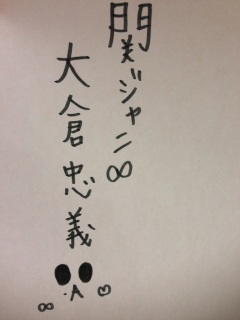 関ジャニ∞
大倉忠義